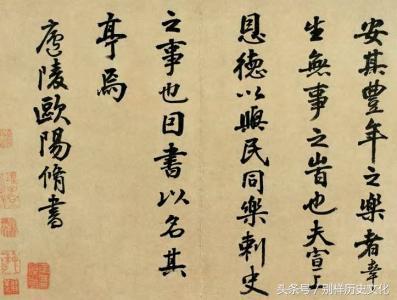 安其豐年之樂者幸
生無事之旹也夫宣上
恩德以與民同樂刺史
之事也因書以名其
亭焉
廬陵歐陽脩書
头条号 / 别样历史文化